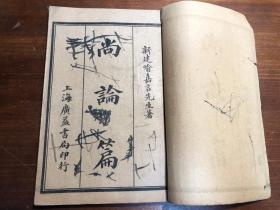 新建喻嘉言先生著
尚論篇
上海廣益書局印行